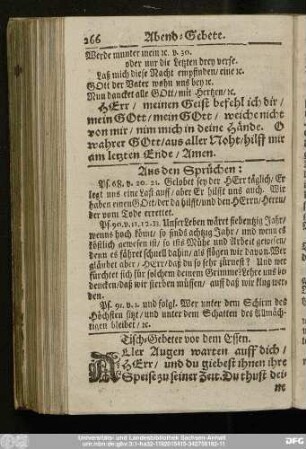 266 Abend-Gebete.
Werde munter mein ꝛc. v. 30.
oder nur die Letzten drey verse.
Laß mich diese Nacht empfinden / eine ꝛc.
GOtt der Vater wohn uns bey ꝛc.
Nun dancket alle GOtt / mit Hertzen / ꝛc.
HErr / meinen Geist befehl ich dir /
mein GOtt / mein GOtt / weiche nicht
von mir / nim mich in deine Hände. O
wahrer GOtt / aus aller Noht / hilff mir
am letzten Ende / Amen.
Aus den Sprüchen:
Ps. 68. v. 20. 21. Gelobet sey der HErr täglich / Er
legt uns eine Last auff / aber Er hilfft uns auch. Wir
haben einen GOtt / der da hilfft / und den HErrn / Herrn /
der vom Tode errettet.
Ps. 90. v. 11. 12. 13. Unser Leben wäret siebentzig Jahr /
wenns hoch kömt / so sinds achtzig Jahr / und wenn es
köstlich gewesen ist / so ists Mühe und Arbeit gewesen /
denn es fähret schnell dahin / als flögen wir davon. Wer
gläubet aber / HErr / daß du so sehr zürnest? Und wer
fürchtet sich für solchem deinem Grimme? Lehre uns be-
dencken / daß wir sterben müssen / auff daß wir klug wer-
den.
Ps. 91. v. 1. und folgl. Wer unter dem Schirm des
Höchsten sitzt / und unter dem Schatten des Allmäch-
tigen bleibet / ꝛc.
Tisch-Gebeter vor dem Essen.
Aller Augen warten auff dich /
HErr / und du giebest ihnen ihre
Speise zu seiner Zeit. Du thust dei-
ne
Universitäts- und Landesbibliothek Sachsen-Anhalt
DFG